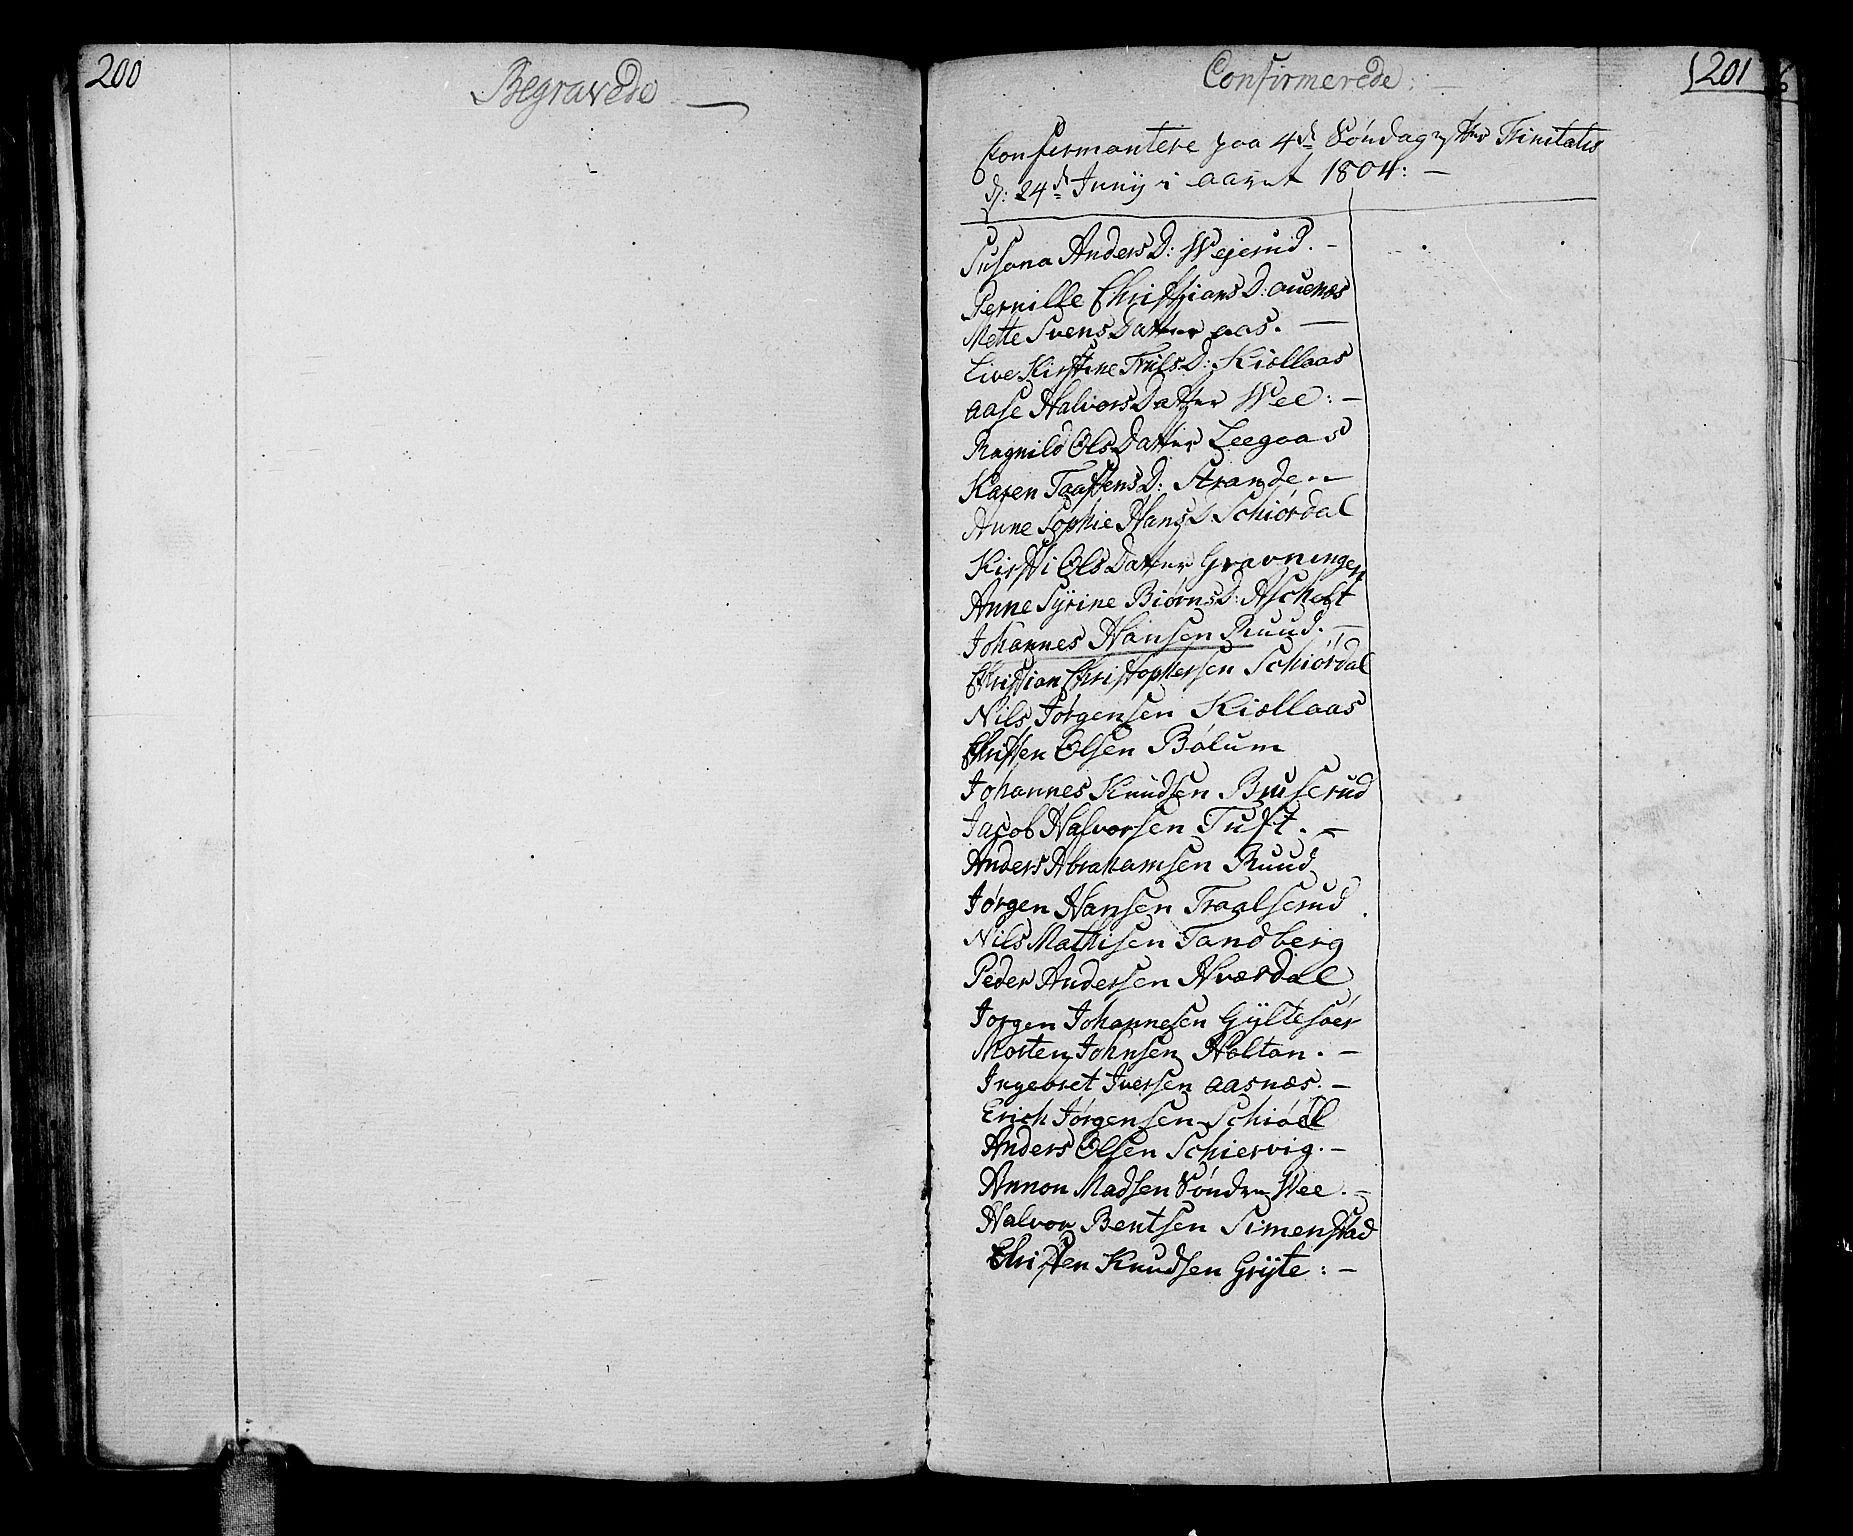 200
Begravede
Confirmerede:
201
Confirmantere paa 4de Søndag efter Trinitatis
d: 24de Junij i aaret 1804:
Susana Anders D: Wejerud.
Pernille Christians D: auenæs
Mette Svens Datter aas.
Live Kirstine Truls D: Kiøllaas
aase Halvors Datter Wee:
Ragnild Ols Datter Leegaas
Karen Taastens D: Stranden
Anne Sophie Hans D Schiørdal
Kirsti Ols Datter Gravningen
Anne Syrine Biørns D: Ascheft
Johannes Hansen Ruud.
Christian Christophersen Schiørdal
Nils Jørgensen Kiøllaas
Christen Olsen Bølum
Johannes Knudsen Bruserud
Jacob Halvorsen Tuft.
Anders Abrahamsen Ruud
Jørgen Hansen Traalserud
Nils Mathisen Tandberg
Peder Andersen Hværdal
Jorgen Johannesen Gyltesøer
Morten Johnsen Holtan.
Ingebret Iversen aasnæs.
Erich Jørgensen Schiødl
Anders Olsen Schiervig.
Annon Madsen Søndre Wee.
Halvor Bentsen Simenstad
Christen Knudsen Gryte: